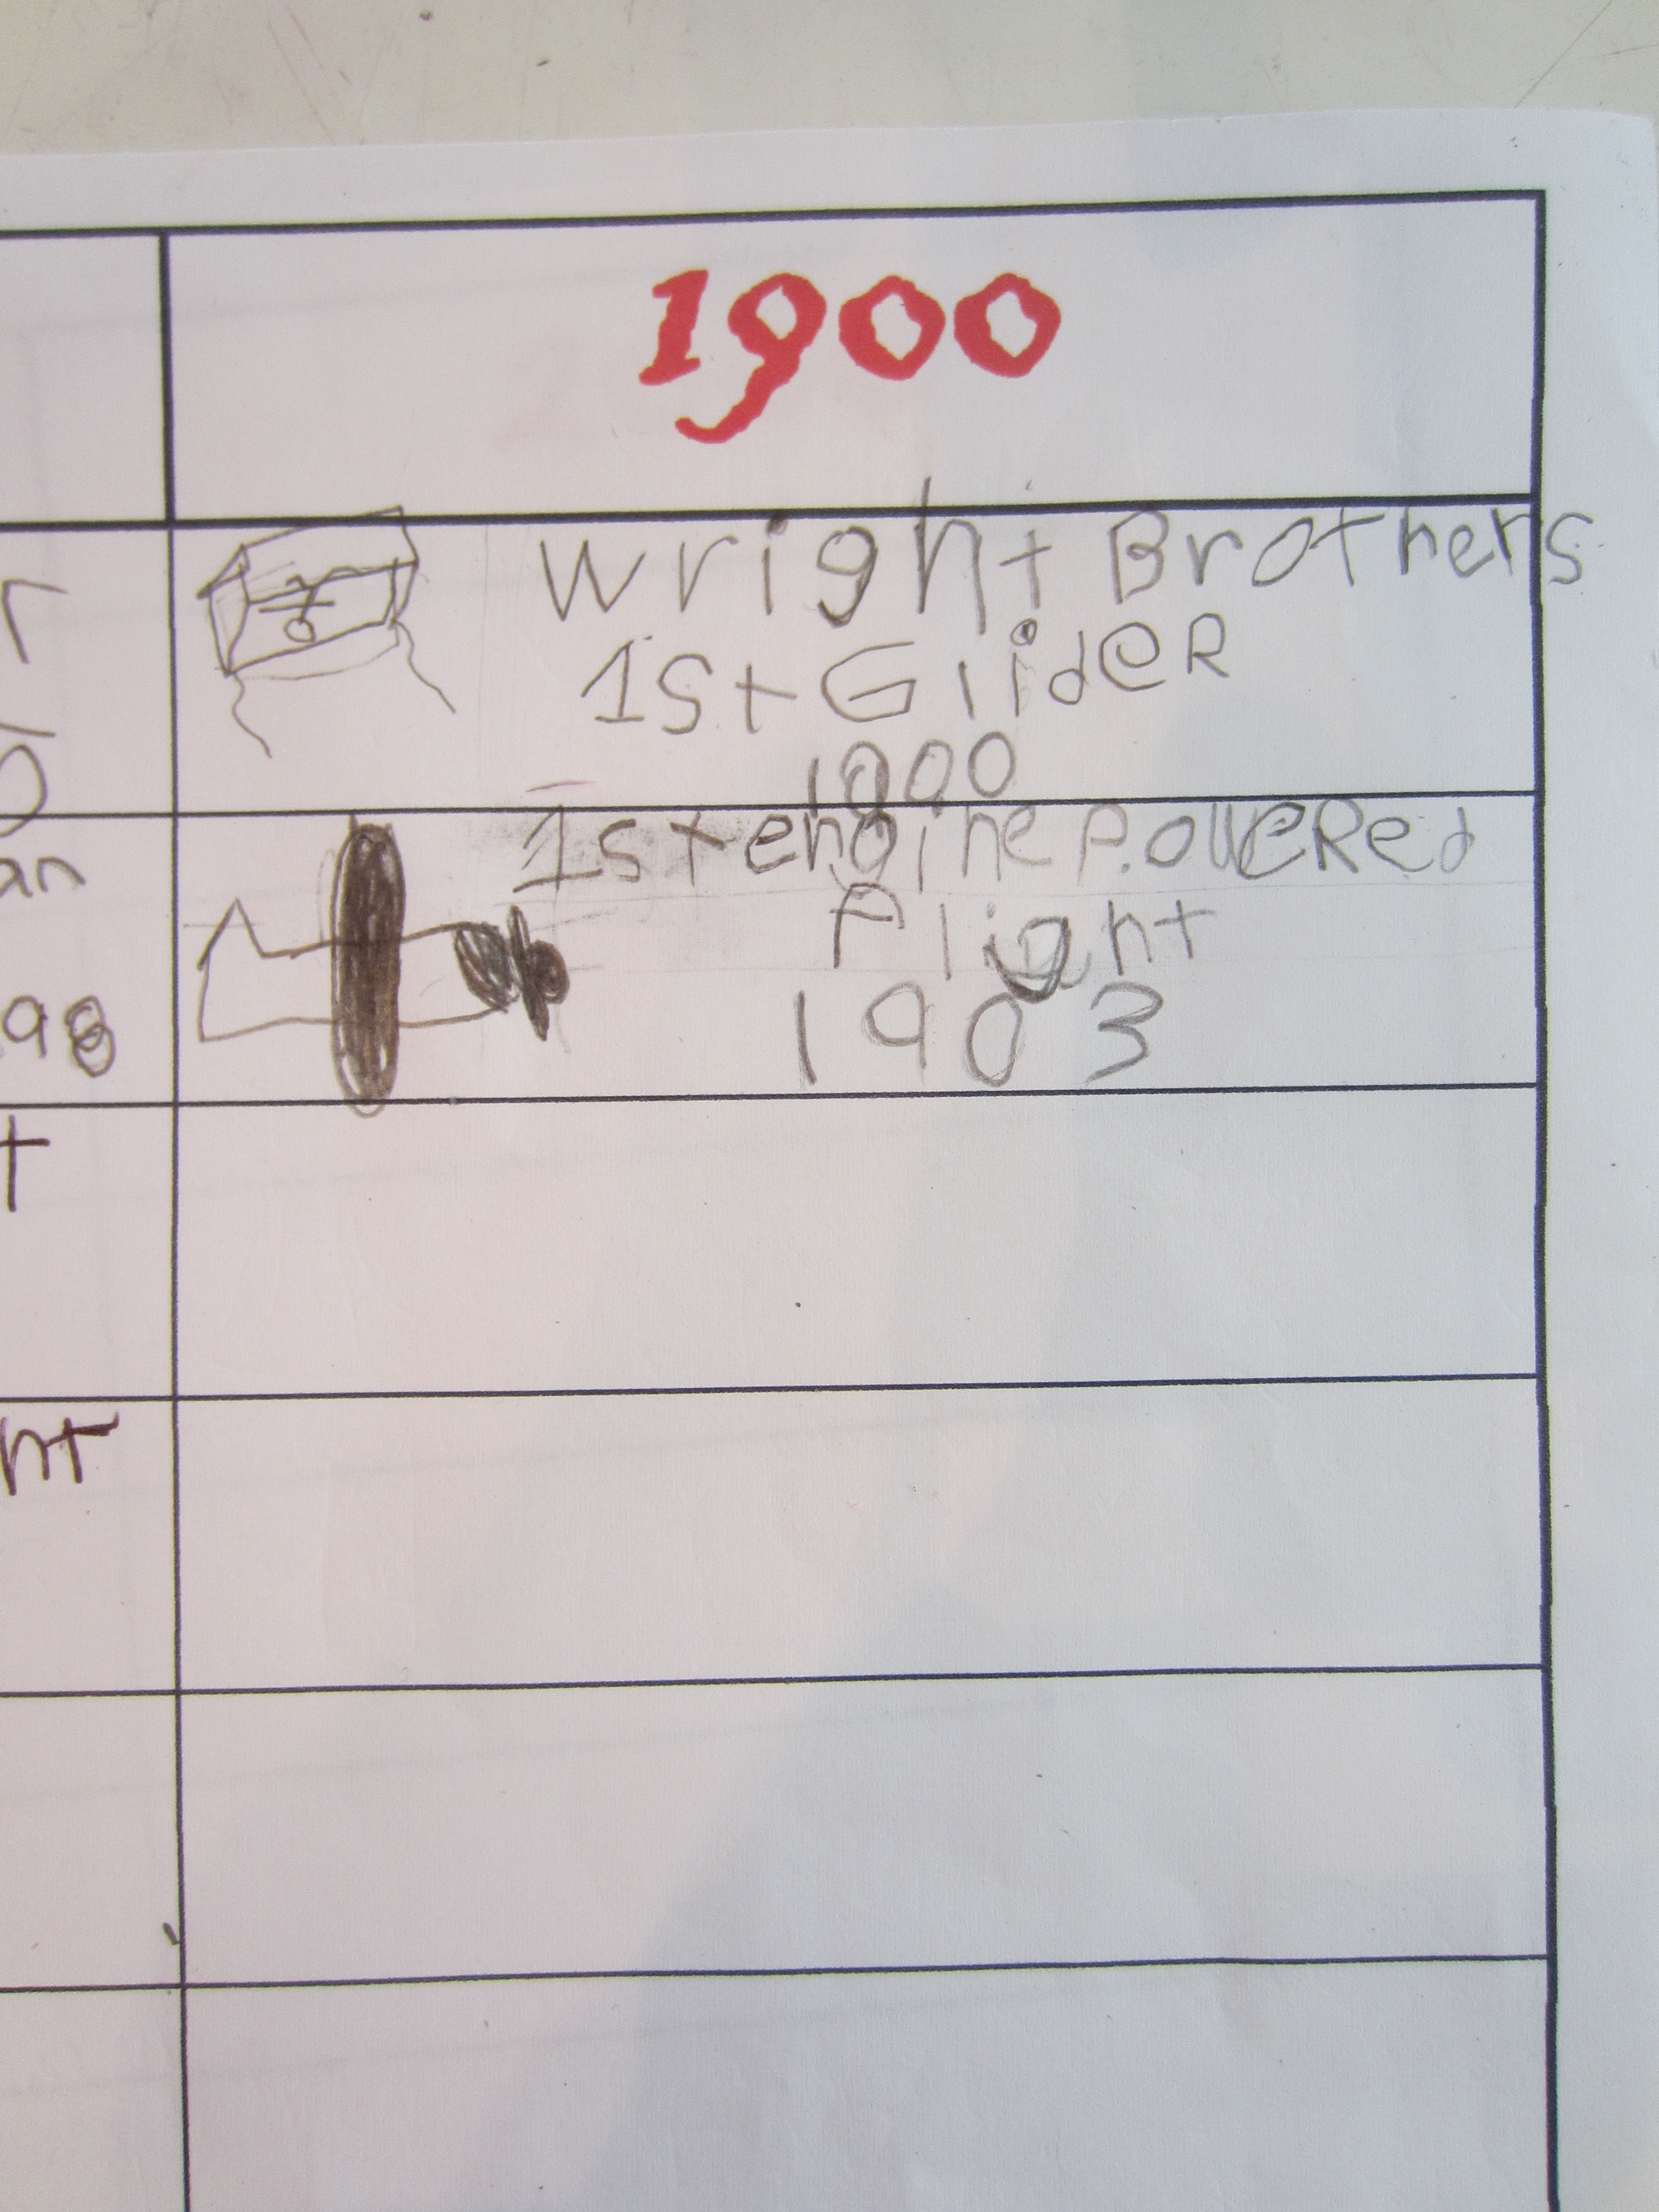 1900
Wright Brothers
1st GlideR
1900
1st engine poweRed
flight
1903
r
an
98
t
ht